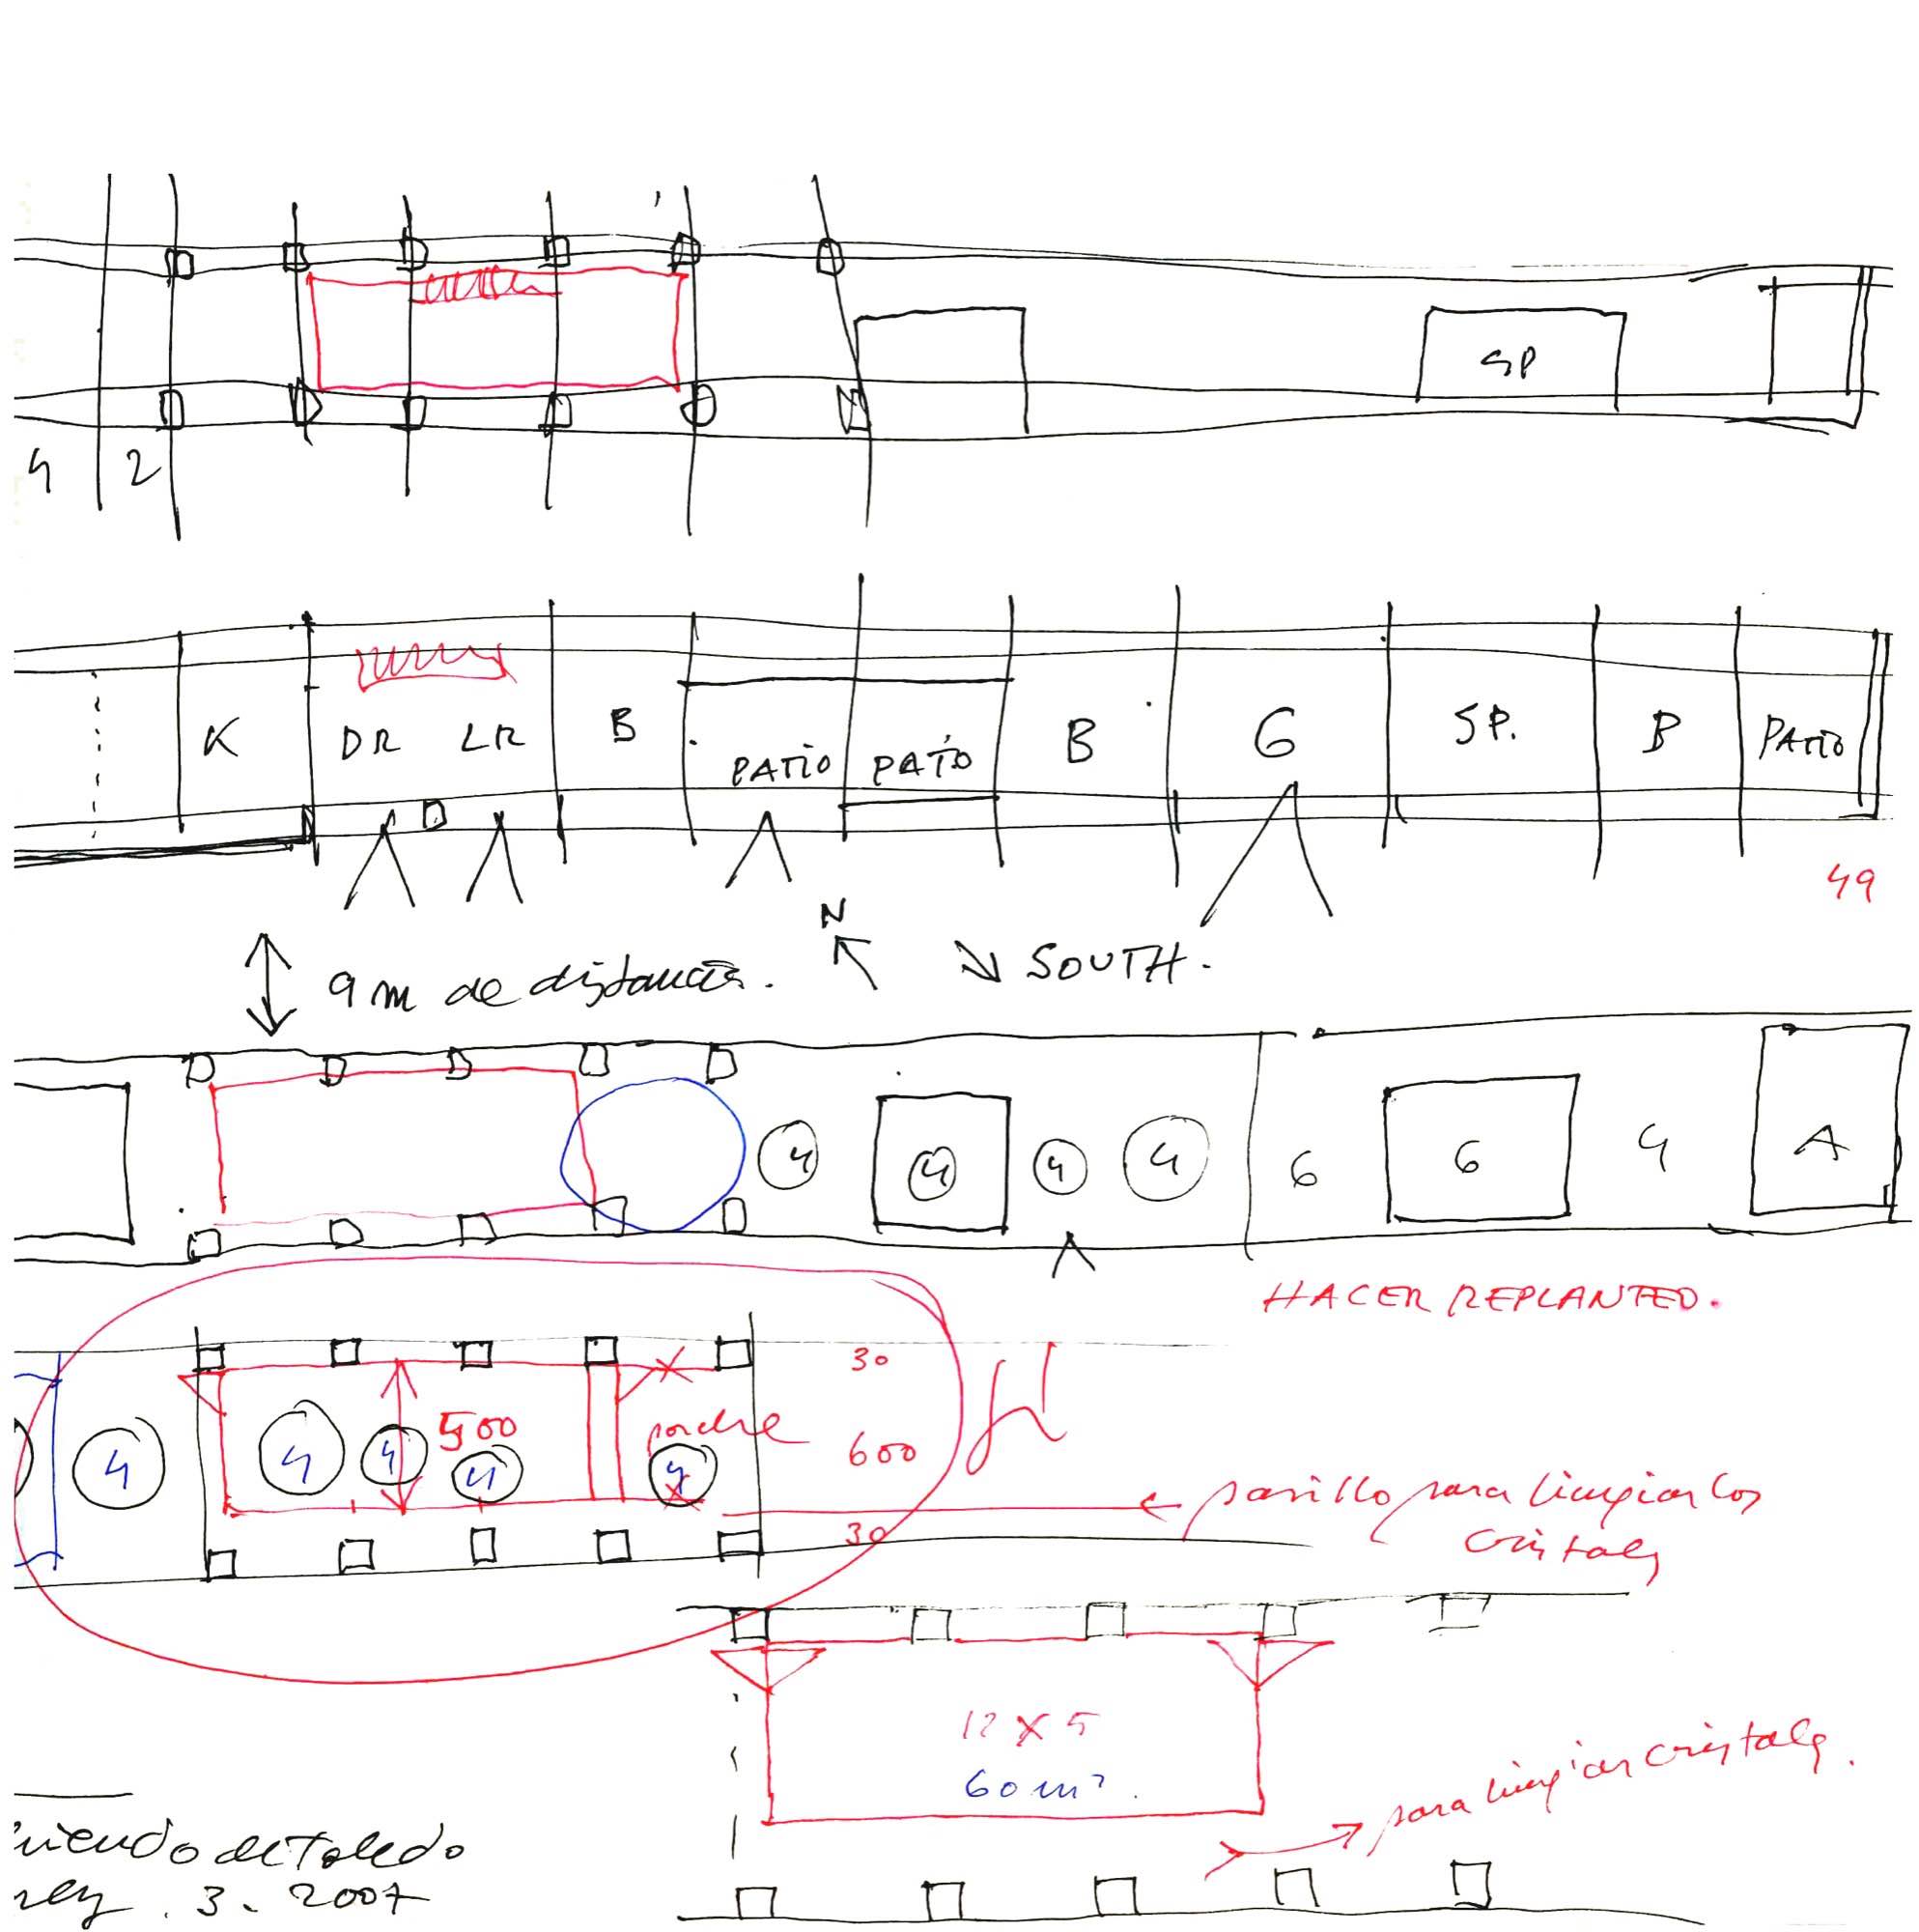 4 2
SP
K DR LR B PATIO PATIO B G SP. B PATIO
49
N
9 m de distancia. SOUTH.
4 4 4 4 6 6 4 A
HACER REPLANTEO.
30
4 4 4 500 4 4 600
30
para limpiar los
cristales
12 x 5
60 m²
para limpiar cristales.
de Toledo
3. 2007